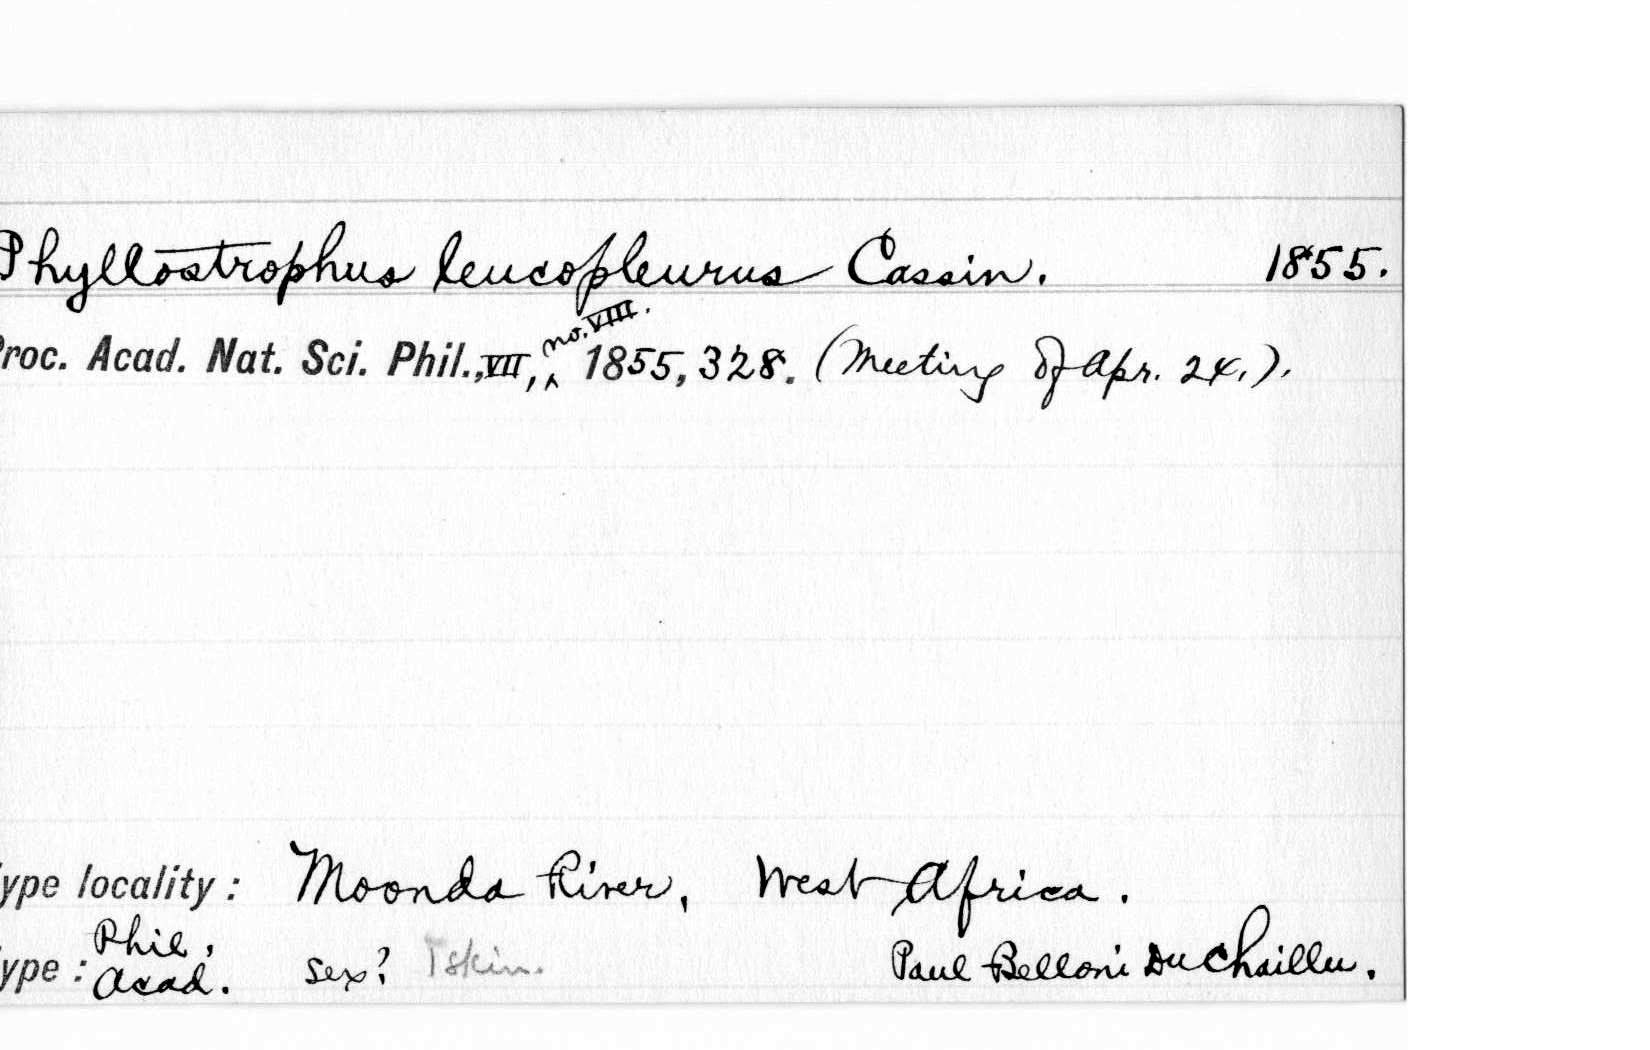 Phyllostrophus leucopleurus Cassin. 1855.
Proc. Acad. Nat. Sci. Phil., VII, no. VIII. 1855, 328. (Meeting of Apr. 24.).
ype locality: Moonda River, West Africa.
ype: Phil. Acad. sex? skin. Paul Belloni Du Chaillu.